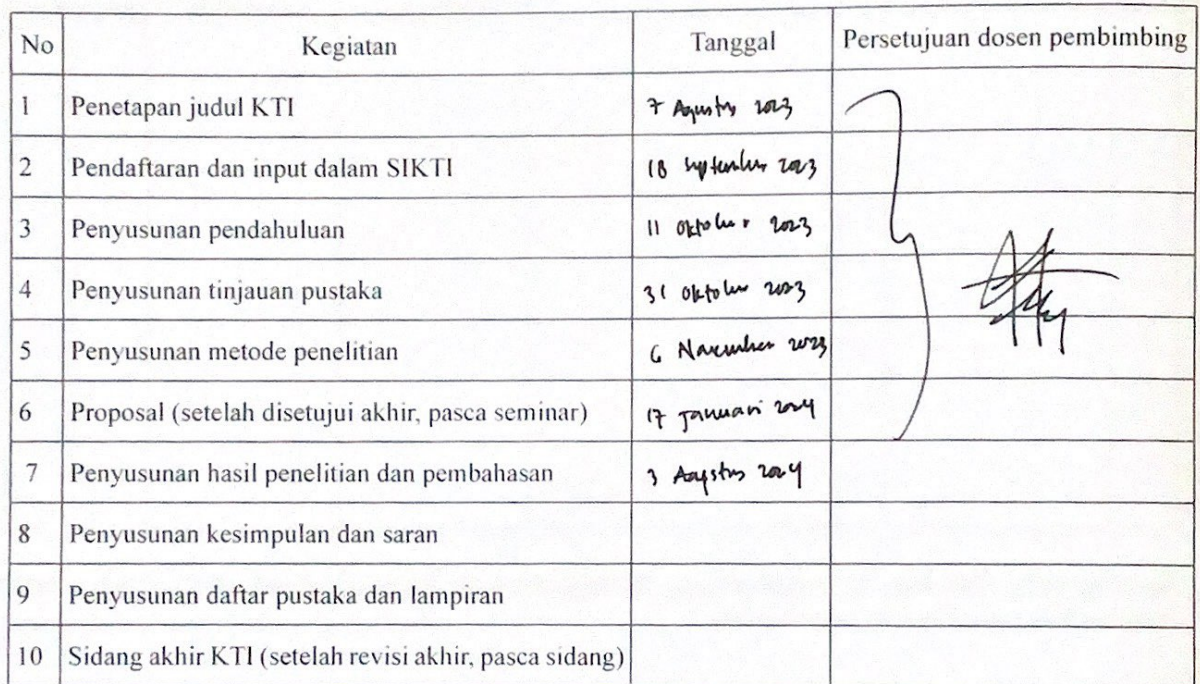 No Kegiatan Tanggal Persetujuan dosen pembimbing
1 Penetapan judul KTI 7 Agustus 2023
2 Pendaftaran dan input dalam SIKTI 18 September 2023
3 Penyusunan pendahuluan 11 Oktober 2023
4 Penyusunan tinjauan pustaka 31 Oktober 2023
5 Penyusunan metode penelitian 6 November 2023
6 Proposal (setelah disetujui akhir, pasca seminar) 17 Januari 2024
7 Penyusunan hasil penelitian dan pembahasan 3 Agustus 2024
8 Penyusunan kesimpulan dan saran
9 Penyusunan daftar pustaka dan lampiran
10 Sidang akhir KTI (setelah revisi akhir, pasca sidang)